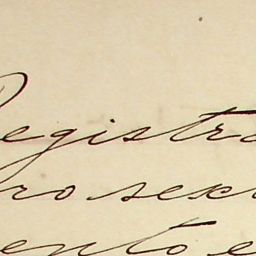 Registra
ro sexa
ento e